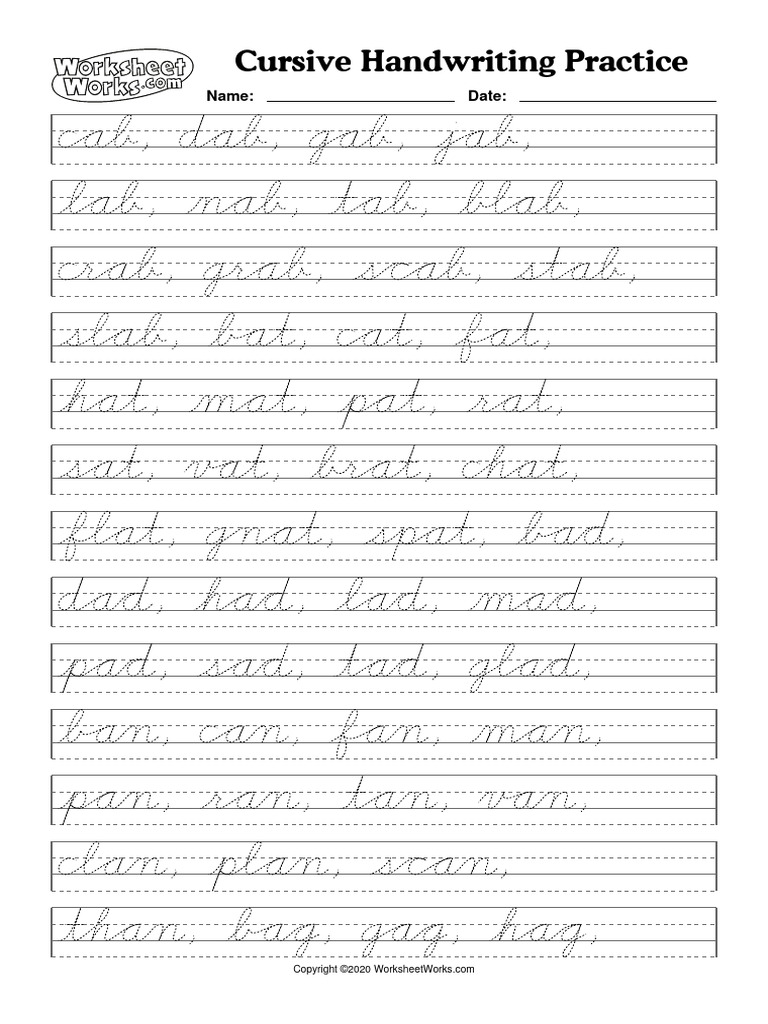 Worksheet Works.com
Cursive Handwriting Practice
Name: Date:
cab, dab, gab, jab,
lab, nab, tab, blab,
crab, grab, scab, stab,
slab, bat, cat, fat,
hat, mat, pat, rat,
sat, vat, brat, chat,
flat, gnat, spat, bad,
dad, had, lad, mad,
pad, sad, tad, glad,
ban, can, fan, man,
pan, ran, tan, van,
clan, plan, scan,
than, bag, gag, hag,
Copyright ©2020 WorksheetWorks.com